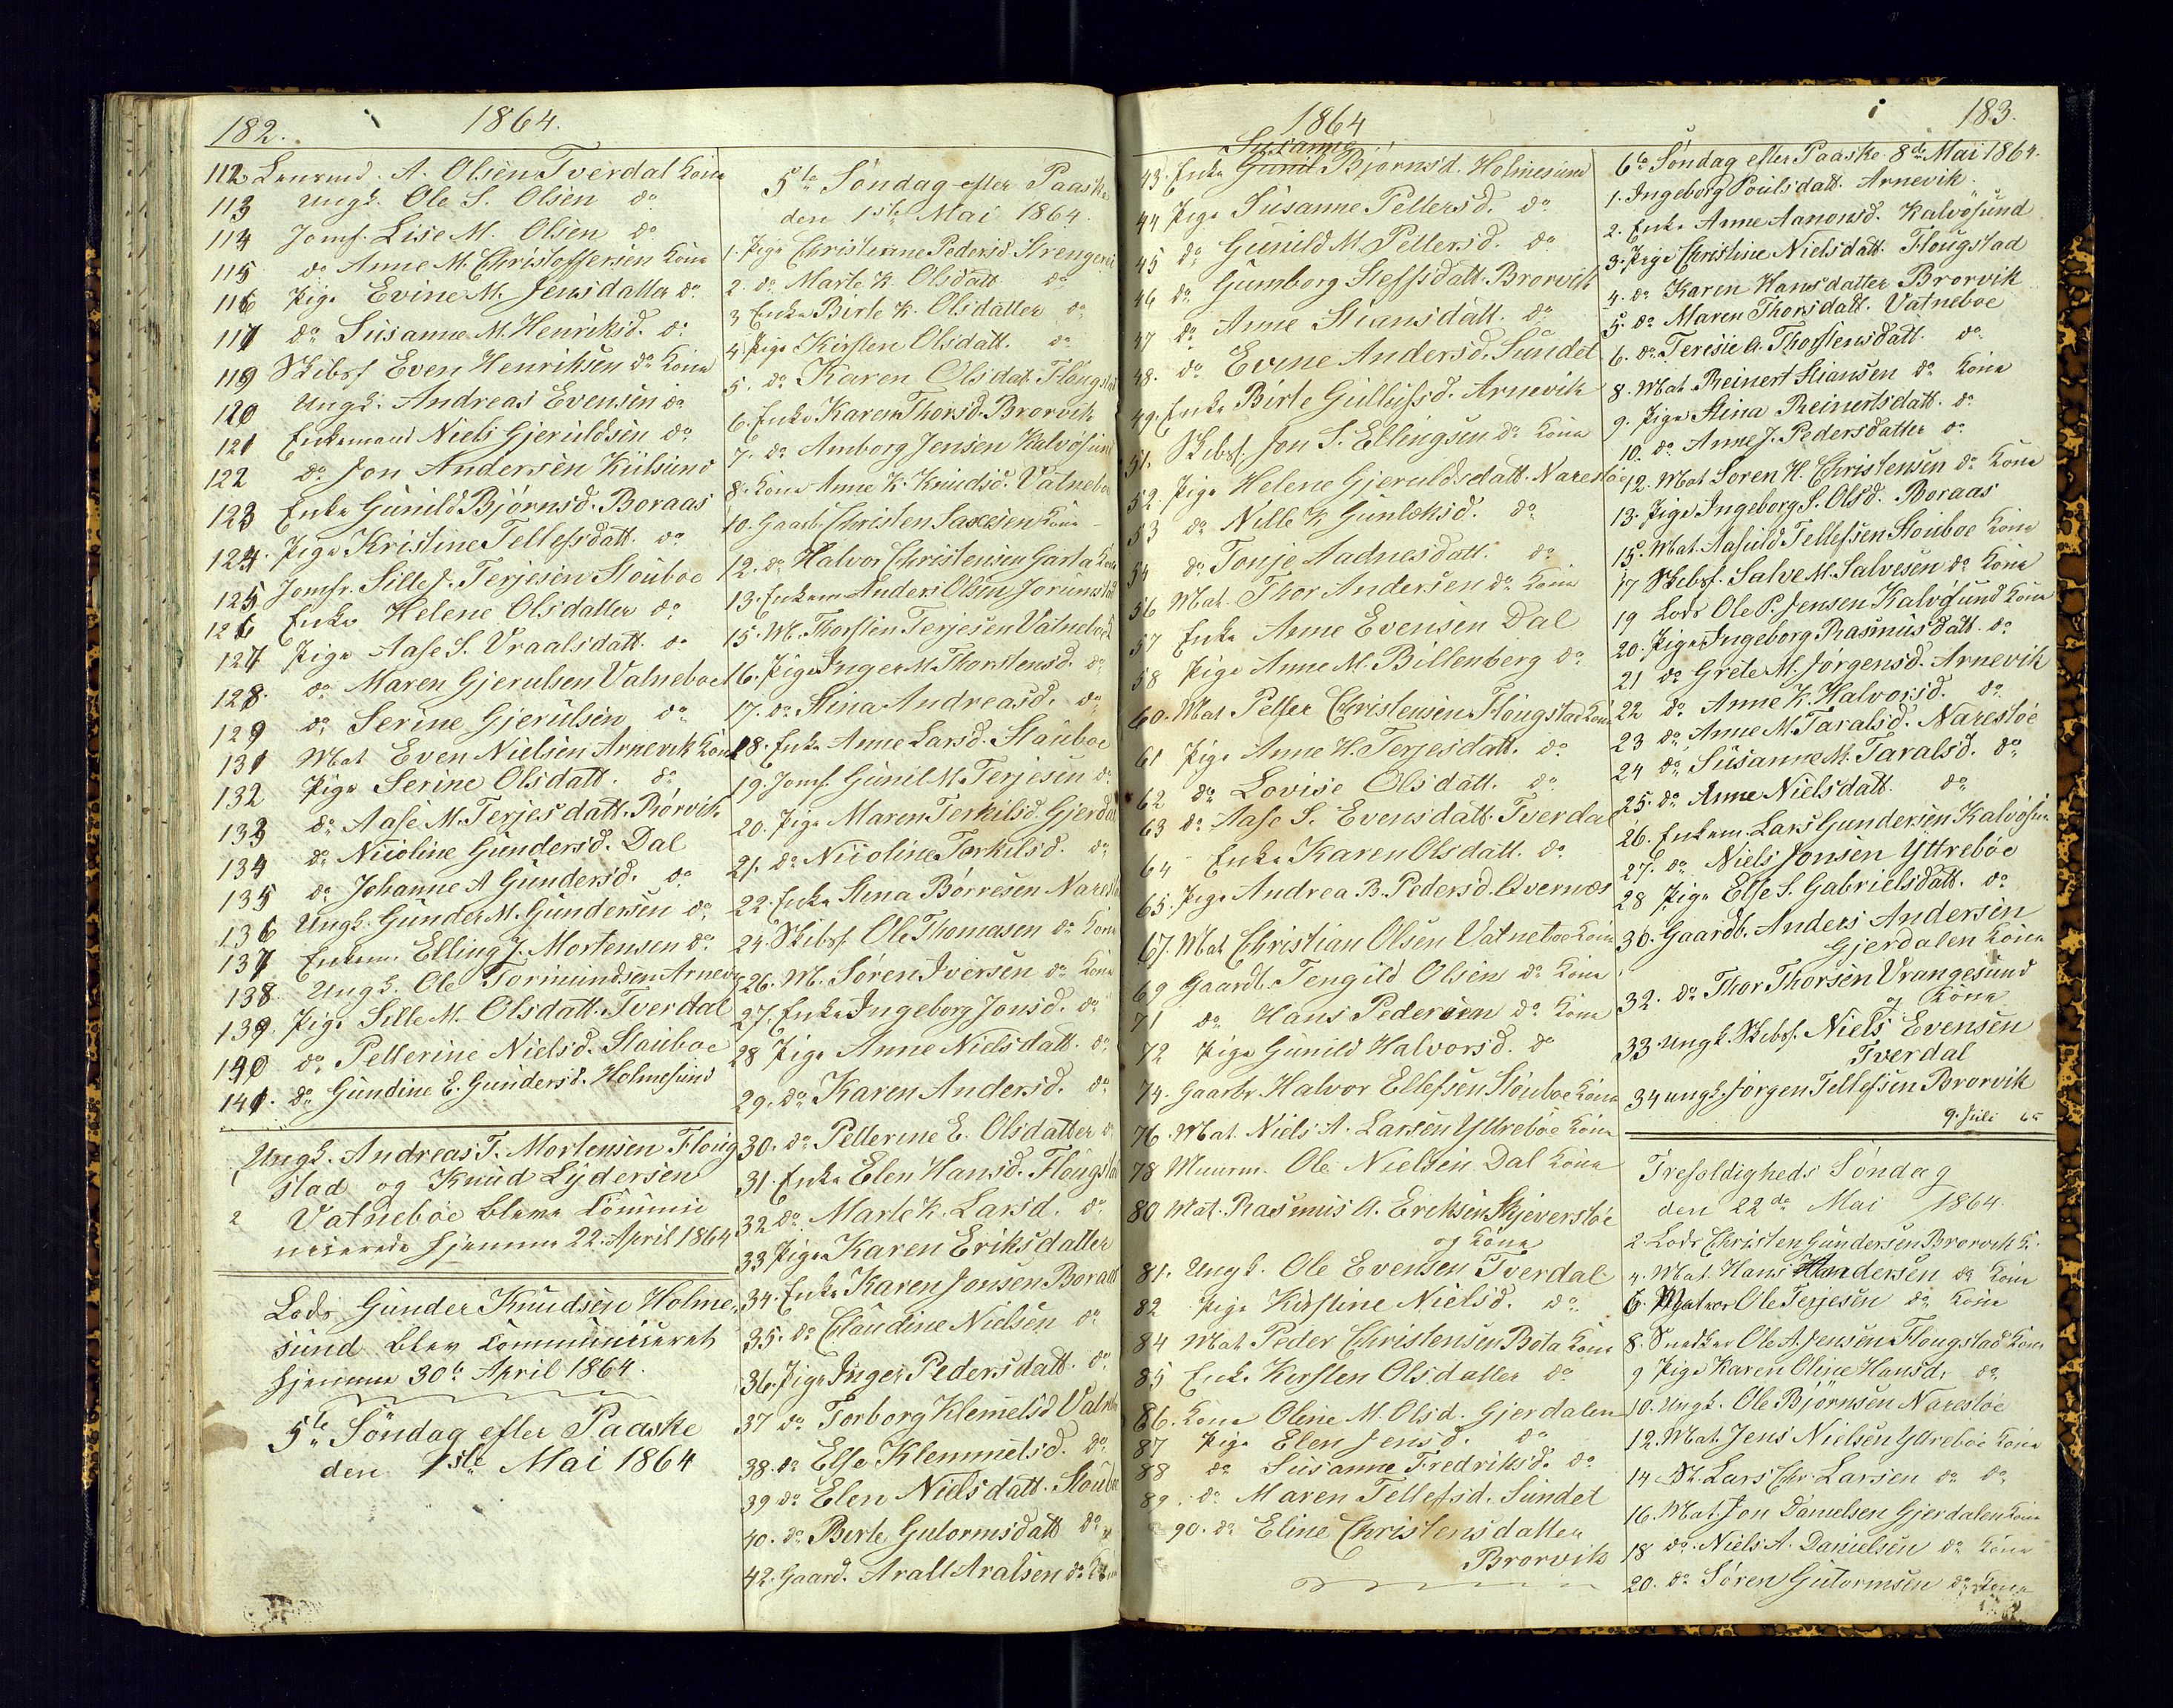 182.
1864.
112 Lensmd. A. Olsen Tverdal Kone
113 Ungk. Ole S. Olsen do
114 Jomf. Lise M. Olsen do
115 do Anne M. Christoffersen Kone
116 Pige Evine M. Jensdatter do
117 do Susanne M. Henriksd. do
119 Skibsf Even Henriksen do Kone
120 Ungk. Andreas Evensen do
121 Enkemand Niels Gjeruldsen do
122 do Jon Andersen Kilsund
123 Enke Gunild Bjørnsd. Boraas
124. Pige Kristine Tellefsdatt. do
125 Jomfr. Sille J. Terjesen Stouboe
126 Enke Helene Olsdatter do
127 Pige Aase S. Vraalsdatt. do
128. do Maren Gjerulsen Vatneboe
129 do Serine Gjerulsen do
131 Mat Even Nielsen Arnevik Kone
132 Pige Serine Olsdatt. do
133 do Aase M. Terjesdatt. Rørvik
134 do Nicoline Gundersd. Dal
135 do Johanne A Gundersd. do
136 Ungk. Gunder M. Gundersen do
137 Enkem. Elling J. Mortensen do
138 Ungk. Ole Tormundsen Arnevig
139. Pige Sille M. Olsdatt. Tverdal
140 do Pellerine Nielsd. Stouboe
141. do Gundine E. Gundersd. Holmesund
Ungk. Andreas T. Mortensen Floug
stad og Knud Lydersen
2 Vatneboe bleve Commu
nicerede hjemme 22. April 1864
Lods Gunder Knudsen Holme
sund blev Communiceret
hjemme 30te April 1864.
5te Søndag efter Paaske
den 1ste Mai 1864
5te Søndag efter Paaske
den 1ste Mai 1864.
1. Pige Christianne Pedersd. Strengerei
2. do Marte K. Olsdatt do
3 Enke Birte K. Olsdatter do
4. Pige Kirsten Olsdatt. do
5. do Karen Olsdat. Flougstad
6. Enke Karen Thorsd. Brorvik
7. do Amborg Jensen Kalvøsund
8. Kone Anne K. Knudsd. Vatneboe
10. Gaarb. Christen Saxesen Kone
12. do Halvor Christensen Garta Kone
13. Enkem Anders Olsen Jorunstad
15. M. Thorsten Terjesen Vatneboe K
16. Pige Inger M. Thorstensd. do
17. do Stina Andreasd. do
18. Enke Anne Larsd. Stouboe
19. Jomf. Gunil M. Terjesen do
20. Pige Maren Terkilsd. Gjerdal
21. do Nicoline Terkilsd. do
22. Enke Stina Børresen Narestø
24. Skibsf. Ole Thomasen do Kone
26. M. Søren Iversen do Kone
27. Enke Ingeborg Jonsd. do
28 Pige Anne Nielsdatt. do
29. do Karen Andersd. do
30. do Pellerine E. Olsdatter do
31. Enke Elen Hansd. Flougstad
32 do Marte K. Larsd. do
33 Pige Karen Eriksdatter
34. Enke Karen Jonsen Boraas
35. do Claudine Nielsen do
36. Pige Inger Pedersdatt. do
37 do Torborg Klemetsd Vatn
38. do Else Klemmetsd. do
39 do Elen Nielsdatt. Stoub
40. do Berte Gutormsdatt do
42. Gaard. Aralt Aralsen do Kone
1864
183.
Susanne
43. Enke Gunil Bjørnsd. Holmesund
44 Pige Susanne Pettersd. do
45 do Gunild M. Pettersd. do
46 do Gumborg Steffsdatt. Brorvik
47 do Anne Stiansdatt. do
48. do Evine Andersd. Sundet
49. Enke Birte Gullufsd. Arnevik
51. Skibsf. Jon S. Ellingsen do Kone
52 Pige Helene Gjeruldsdatt. Narestøe
53 do Nille K Gunleksd. do
54 do Tonje Aadnesdatt. do
56 Mat. Thor Andersen do Kone
57 Enke Anne Evensen Dal
58 Pige Anne M. Billenberg do
60. Mat Petter Christensen Flougstad Kone
61 Pige Anne H. Terjesdatt. do
62 do Lovise Olsdatt. do
63 do Aase S. Evensdatt. Tverdal
64 Enke Karen Olsdatt. do
65. Pige Andrea B. Pedersd. Qvernæs
67. Mat Christian Olsen Vatneboe Kone
69 Gaardb. Tengild Olsen do Kone
71 do Hans Pedersen do Kone
72 Pige Gunild Halvorsd. do
74. Gaarbr Halvor Ellefsen Stouboe Kone
76. Mat. Niels A. Larsen Yttrebøe Kone
78 Muurm. Ole Nielsen Dal Kone
80 Mat. Rasmus A. Eriksen Skjeversløe
og Kone
81. Ungk. Ole Evensen Tverdal
82 Pige Kirstine Nielsd. do
84 Mat Peder Christensen Bota Kone
85 Enke Kirsten Olsdatter do
86. Kone Oline M. Olsd. Gjerdalen
87 Pige Elen Jensd. do
88 do Susanne Fredriksd. do
89. do Maren Tellefsd. Sundet
90. do Eline Christensdatter
Brorvik
6te Søndag efter Paaske 8de Mai 1864.
1. Ingeborg Poulsdatt. Arnevik
2. Enke Anne Aanonsd. Kalvøsund
3. Pige Christine Nielsdatt. Flougstad
4. do Karen Hansdatter Brorvik
5. do Maren Thorsdatt. Vatneboe
6. do Teresie A. Thorstensdatt. do
8. Mat Reinert Stiansen do Kone
9. Pige Stina Reinertsdatt. do
10. do Anne J. Pedersdatter do
12. Mat Søren H. Christensen do Kone
13. Pige Ingeborg S. Olsd. Boraas
15. Mat. Aasuld Tellefsen Stouboe Kone
17 Skibsf. Salve M. Salvesen do Kone
19 Lods Ole P. Jensen Kalvøsund Kone
20. Pige Ingeborg Rasmusdatt. do
21 do Grete M. Jørgensd. Arnevik
22 do Anne K. Halvorsd. do
23 do Anne M. Taralsd. Narestøe
24 do Susanne M. Taralsd. do
25. do Anne Nielsdatt. do
26. Enkem. Lars Gundersen Kalvøsun
27. do Niels Jonsen Yttrebøe
28 Pige Else S. Gabrielsdatt. do
30. Gaardb. Anders Andersen
Gjerdalen Kone
32. do Thor Thorsen Vrangesund
og Kone
33 Ungk. Skibsf. Niels Evensen
Tverdal
34 Ungk. Jørgen Tellefsen Brorvik
9. Juli 65
Trefoldigheds Søndag
den 22de Mai 1864.
2 Lods Christen Gundersen Brorvik K.
4. Mat. Hans Andersen do Kone
6. Matros Ole Terjesen do Kone
8. Snedker Ole A. Jensen Flougstad Kone
9 Pige Karen Oline Hansd. do
10. Ungk. Ole Bjørnsen Narestøe
12. Mat. Jens Nielsen Yttrebøe Kone
14 Sk. Lars Chr. Larsen do do
16. Mat. Jon Danielsen Gjerdalen Kone
18 do. Niels A. Danielsen do Kone
20. do Søren Gutormsen do Kone